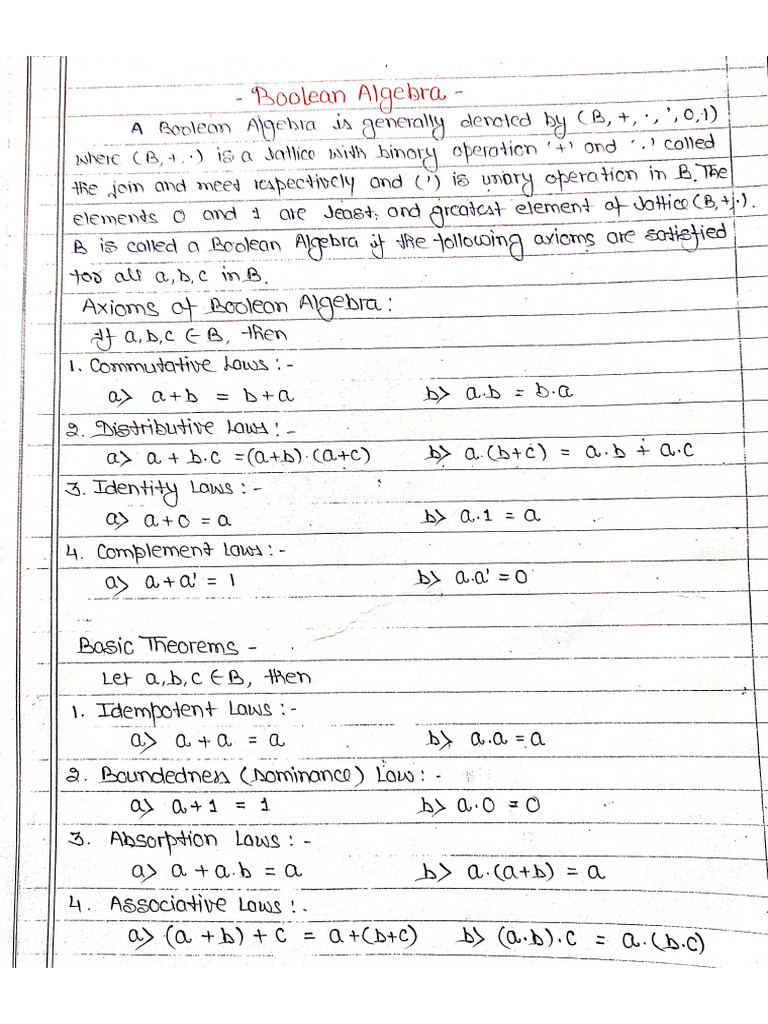 - Boolean Algebra -
A Boolean Algebra is generally denoted by (B, +, ·, ', 0, 1)
where (B, +, ·) is a lattice with binary operation '+' and '·' called
the join and meet respectively and (') is unary operation in B. The
elements 0 and 1 are least, and greatest element of lattice (B, +, ·).
B is called a Boolean Algebra if the following axioms are satisfied
for all a, b, c in B.
Axioms of Boolean Algebra :
If a, b, c ∈ B, then
1. Commutative Laws :-
a> a + b = b + a b> a.b = b.a
2. Distributive Laws :-
a> a + b.c = (a+b).(a+c) b> a.(b+c) = a.b + a.c
3. Identity Laws :-
a> a + 0 = a b> a.1 = a
4. Complement Laws :-
a> a + a' = 1 b> a.a' = 0
Basic Theorems -
Let a, b, c ∈ B, then
1. Idempotent Laws :-
a> a + a = a b> a.a = a
2. Boundedness (Dominance) Law : -
a> a + 1 = 1 b> a.0 = 0
3. Absorption Laws : -
a> a + a.b = a b> a.(a+b) = a
4. Associative Laws :.
a> (a + b) + c = a + (b+c) b> (a.b).c = a.(b.c)